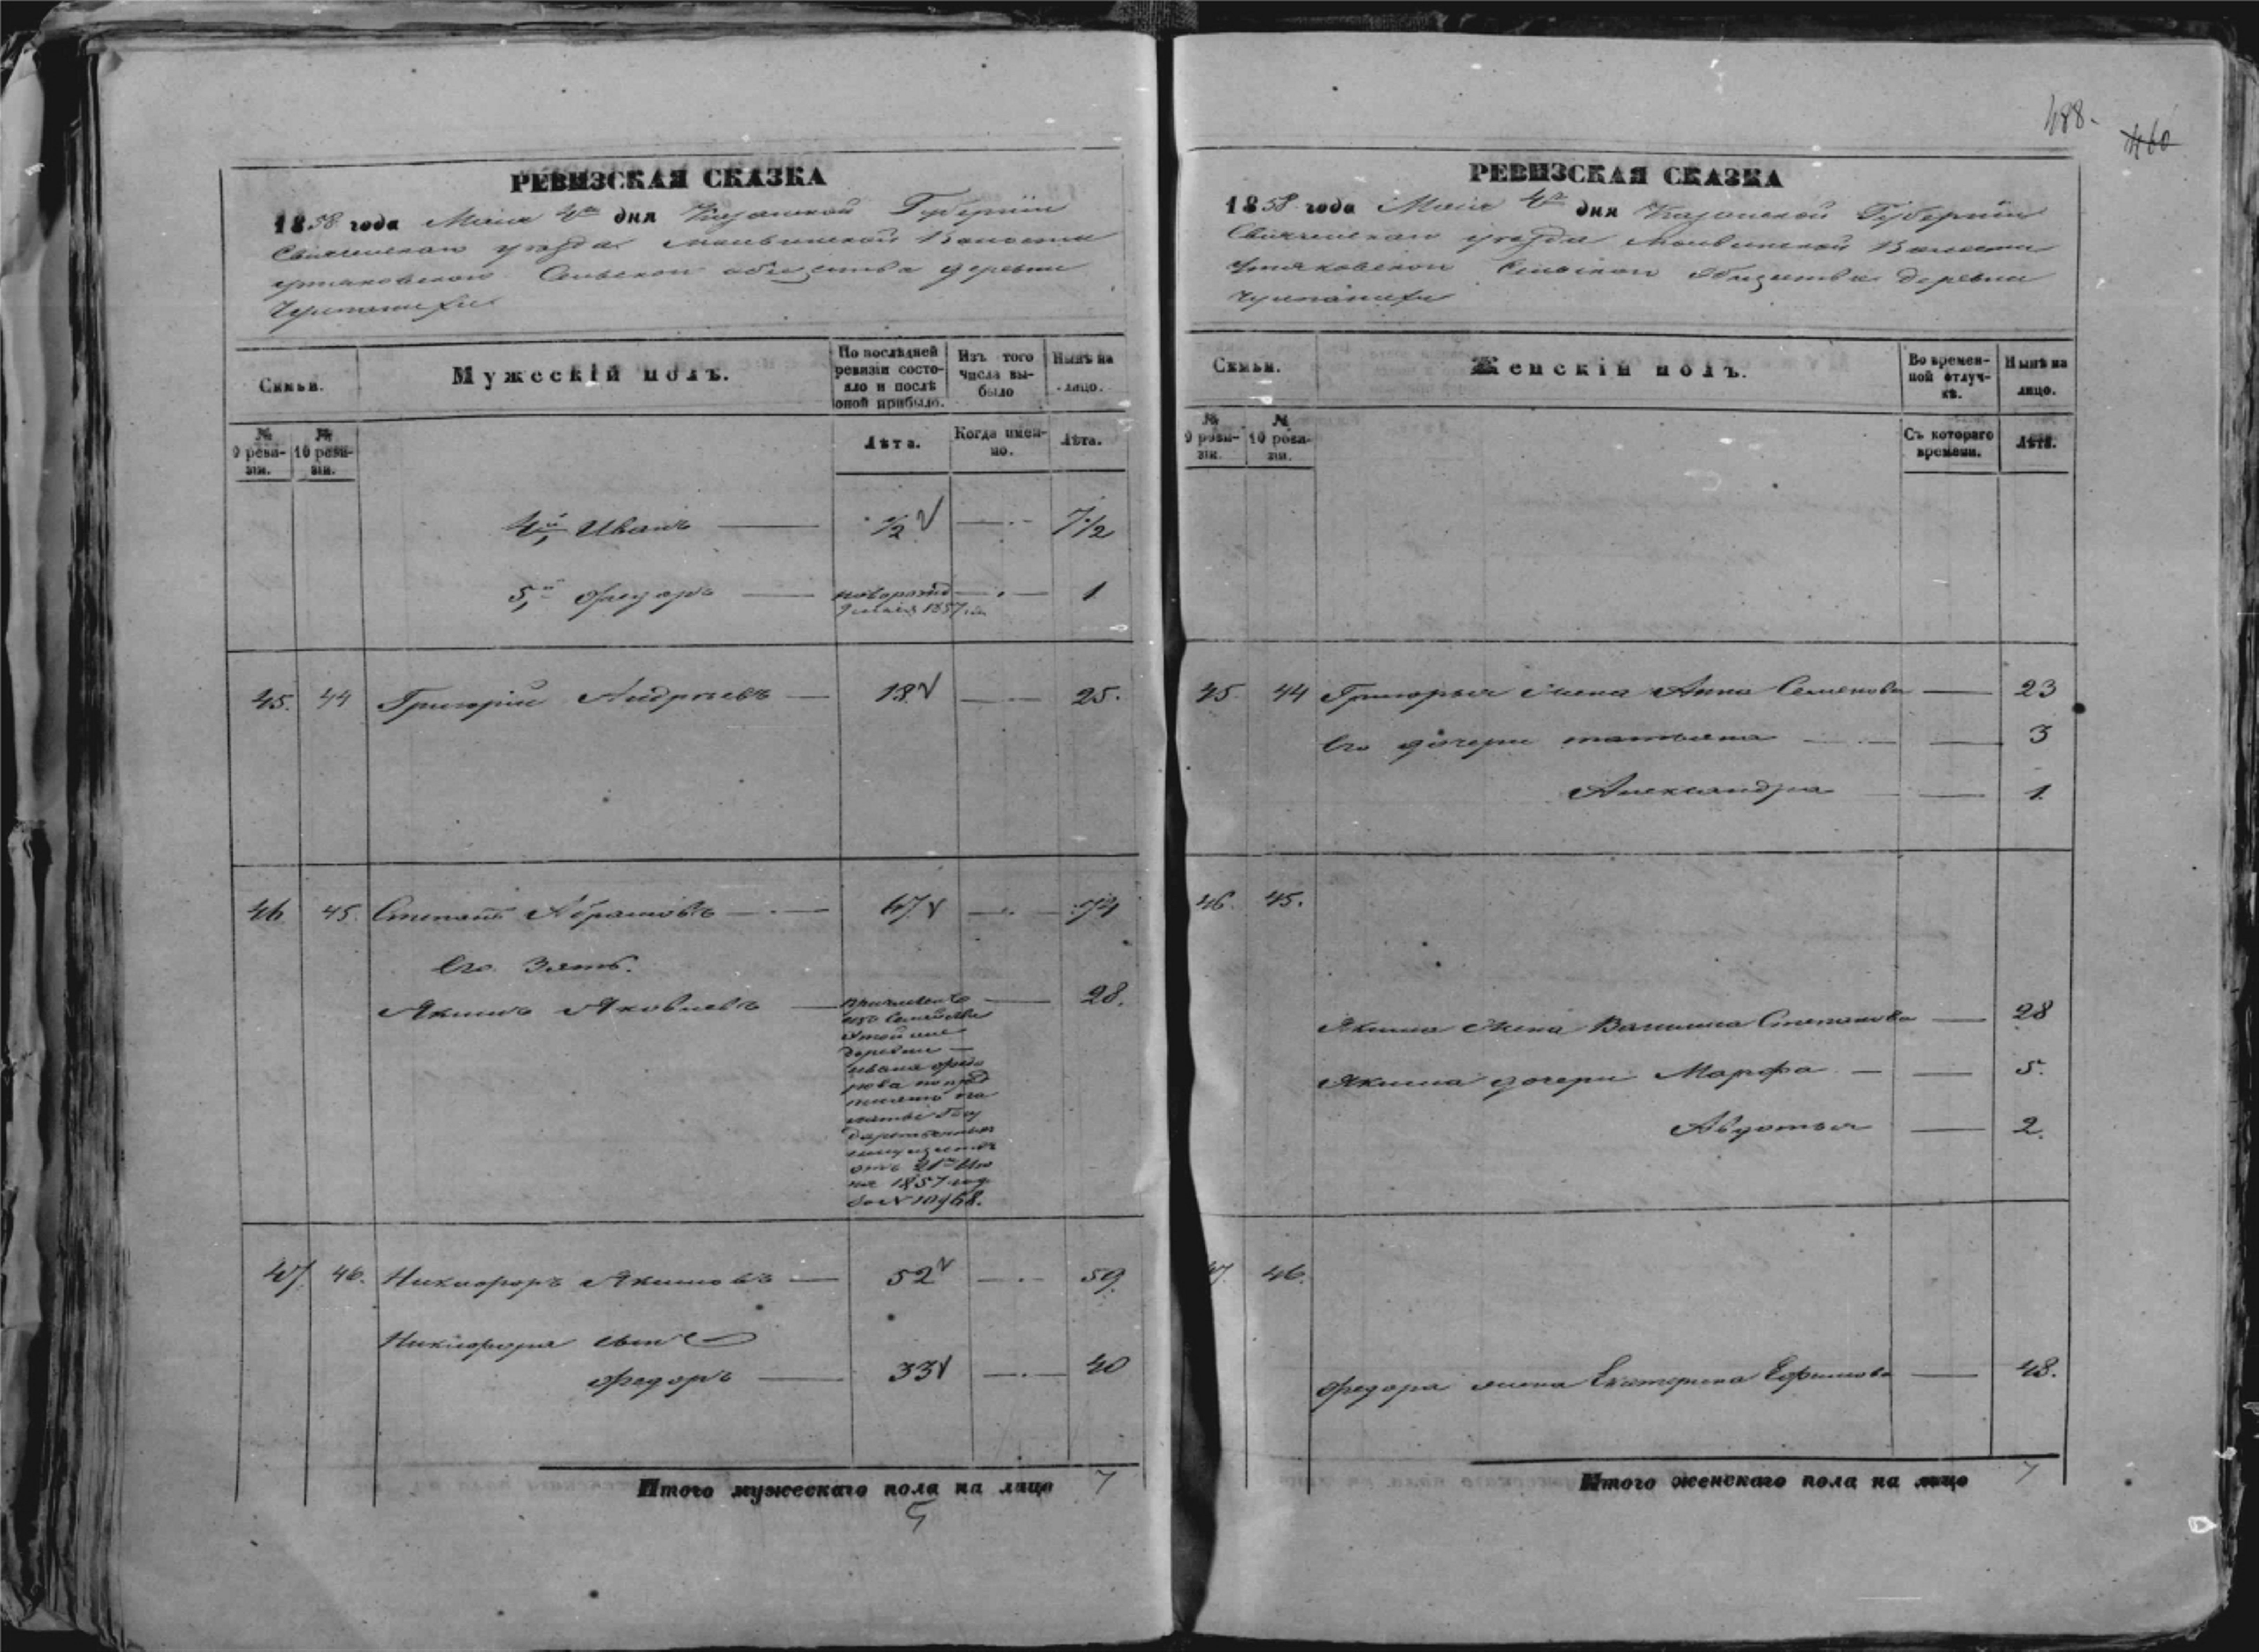 488.
460
РЕВИЗСКАЯ СКАЗКА
1858 года Маія 4го дня Казанской Губерніи
Свіяжскаго уѣзда Молвинской Волости
Утяковскаго Сельскаго общества деревни
Семьи.
Мужескій полъ.
По послѣдней ревизіи состояло и послѣ оной прибыло.
Изъ того числа выбыло
Нынѣ на лицо.
№ 9 ревизіи.
№ 10 ревизіи.
Лѣта.
Когда именно.
Лѣта.
4й, Иванъ 1/2 7 1/2
5й, Федоръ новорожд 1
1857
45. 44 Григорій Андреевъ 18 25.
46 45. Степанъ Абрамовъ 67 74
Его Зять.
Якимъ Яковлевъ причисленъ 28.
изъ Семейства
этой же
деревни
Ивана Федо
рова по пред
писанію па
латы Госу
дарственныхъ
имуществъ
отъ 21го
1857 год
за № 10968.
47 46. Никифоръ Якимовъ 52 59.
Никифора сынъ
Федоръ 33 40
Итого мужескаго пола на лицо 7
5
РЕВИЗСКАЯ СКАЗКА
1858 года Маія 4го дня Казанской Губерніи
Свіяжскаго уѣзда Молвинской Волости
Утяковскаго Сельскаго Общества деревни
Семьи.
Женскій полъ.
Во временной отлучкѣ.
Нынѣ на лицо.
№ 9 ревизіи.
№ 10 ревизіи.
Съ котораго времени.
Лѣта.
45. 44 Григорья жена Анна Семенова 23
Его дочери Татьяна 3
Александра 1
46. 45.
Якима жена Степанова 28
Якима дочери Марфа 5.
Авдотья 2.
47. 46.
Федора жена Екатерина Ефимова 48.
Итого женскаго пола на лицо 7